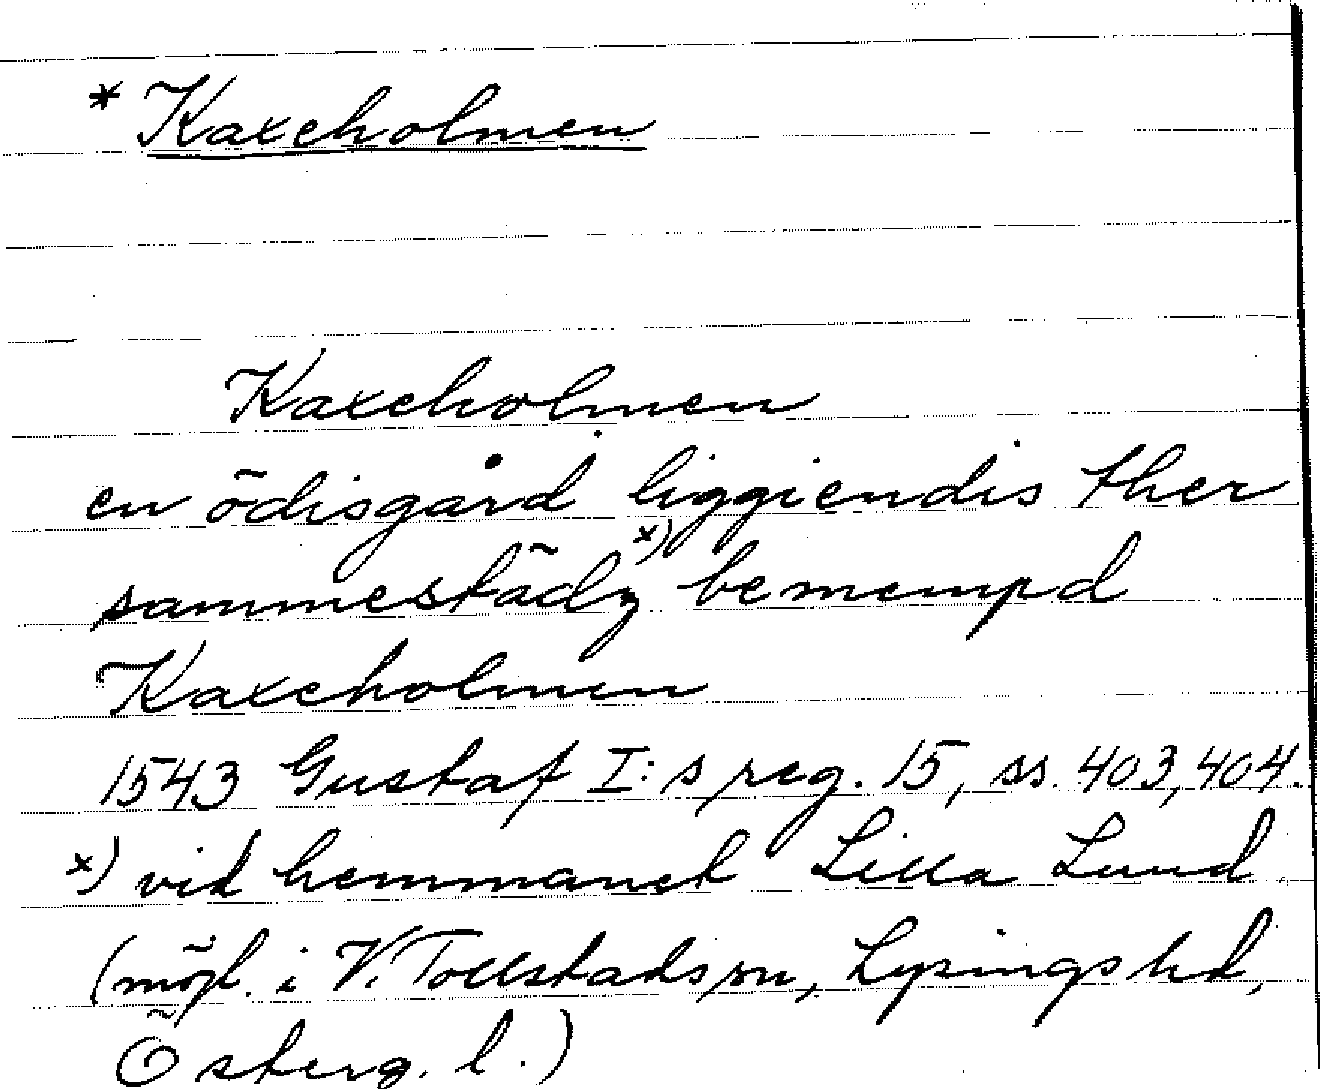 * Kaxeholmen
Kaxeholmen
en ödisgård liggiendis ther
sammestädz x) bemempd
Kaxeholmen
1543 Gustaf I:s reg. 15, ss. 403, 404.
x) vid hemmanet Lilla Lund
(möjl. i V. Tollstads sn, Lysings hd,
Österg. l.)